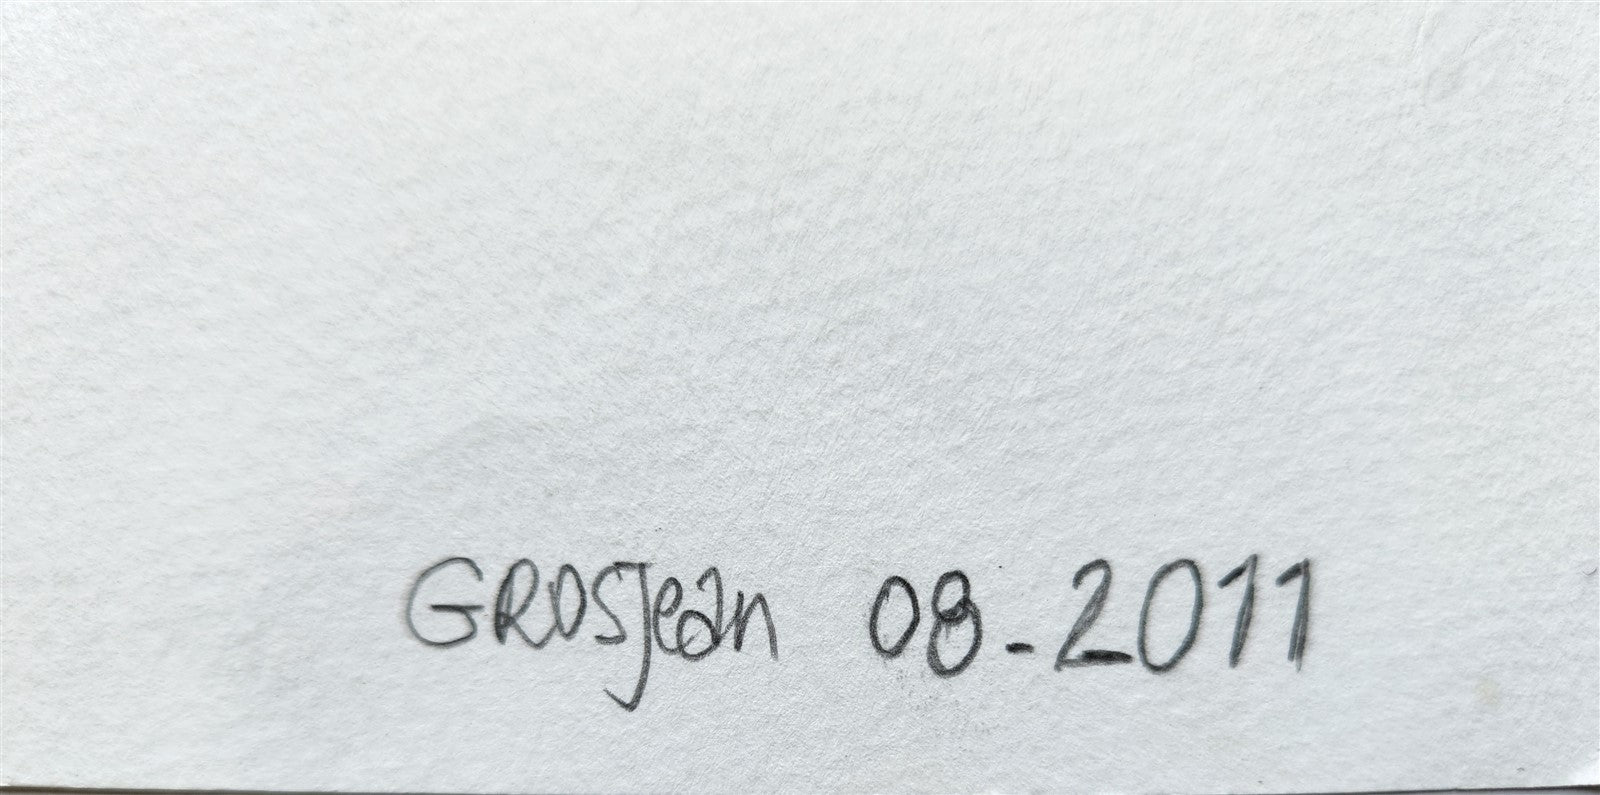 GROSJean 08-2011